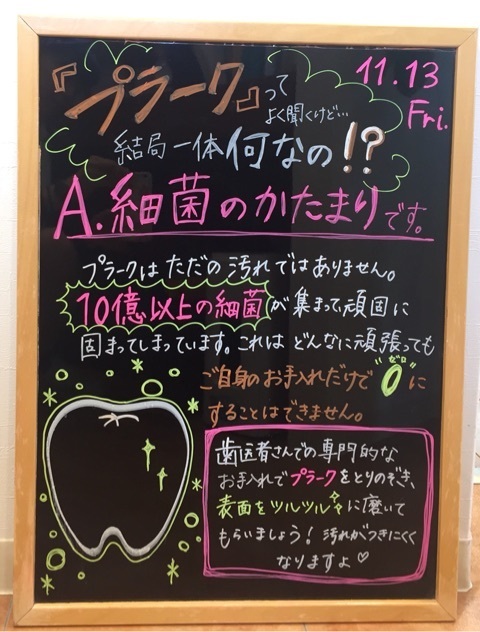 『プラーク』って
よく聞くけど…
11.13
Fri.
結局一体何なの!?
A.細菌のかたまりです。
プラークはただの汚れではありません。
10億以上の細菌が集まって頑固に
固まってしまっています。これはどんなに頑張っても
ご自身のお手入れだけで"0"に
ゼロ
することはできません。
歯医者さんでの専門的な
お手入れでプラークをとりのぞき、
表面をツルツルに磨いて
もらいましょう!汚れがつきにくく
なりますよ♡